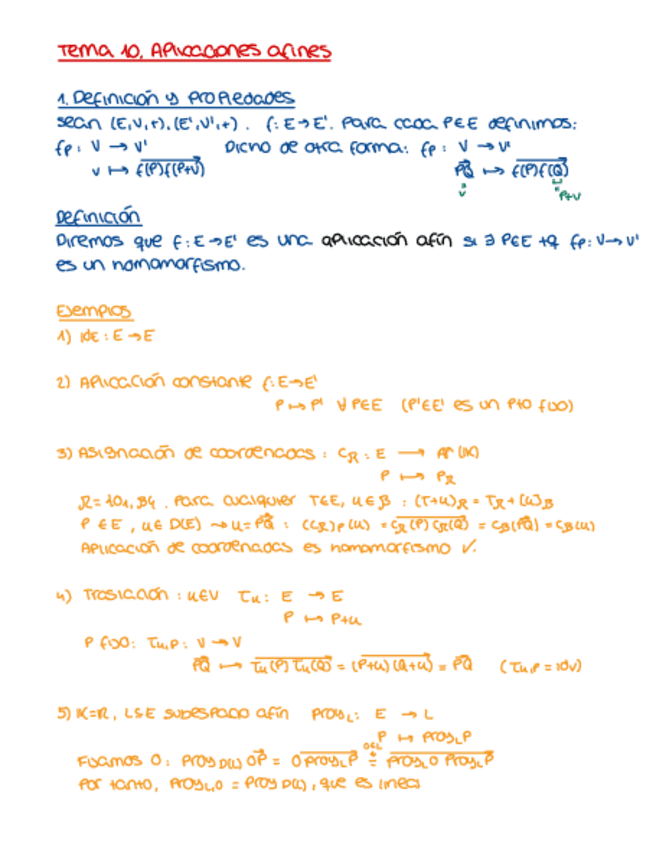 Tema 10. Aplicaciones afines
1. Definición y propiedades
Sean (E,V,+), (E',V',+). f: E→E'. Para cada P∈E definimos:
fp: V → V' Dicho de otra forma: fp: V → V'
v ↦ f(P)f(P+v) PQ ↦ f(P)f(Q)
v P+v
Definición
Diremos que f: E→E' es una aplicación afín si ∃ P∈E tq fp: V→V'
es un homomorfismo.
Ejemplos
1) IdE : E→E
2) Aplicación constante f: E→E'
P ↦ P' ∀P∈E (P'∈E' es un pto fijo)
3) Asignación de coordenadas : CR : E → Aⁿ(K)
P ↦ PR
R={O, B}. Para cualquier T∈E, u∈B : (T+u)R = TR + (u)B
P∈E, u∈D(E) ⇝ u=PQ : (CR)P(u) = CR(P)CR(Q) = CB(PQ) = CB(u)
Aplicación de coordenadas es homomorfismo ✓.
4) Traslación : u∈V τu : E → E
P ↦ P+u
P fijo: τu,P : V → V
PQ ↦ τu(P)τu(Q) = (P+u)(Q+u) = PQ (τu,P = idV)
5) K=R, L≤E subespacio afín proyL : E → L
P ↦ proyL P
O∈L
Fijamos O: proy D(L) OP = O proyL P = proyL O proyL P
Por tanto, proyL,O = proy D(L), que es lineal